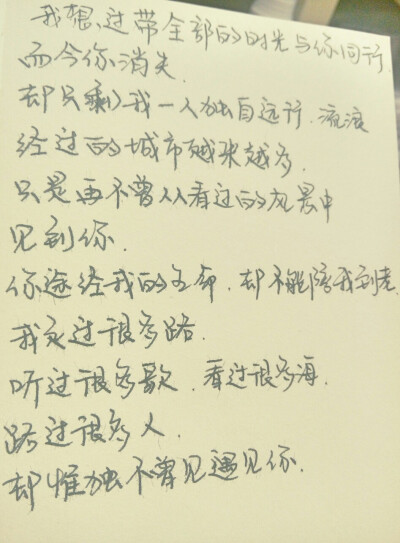 我想过带全部的时光与你同行
而今你消失
却只剩我一人独自远行.流浪
经过的城市越来越多
只是再不曾从看过的风景中
见到你.
你途经我的生命.却不能陪我到老
我走过很多路.
听过很多歌.看过很多海.
路过很多人.
却惟独不曾见遇见你.